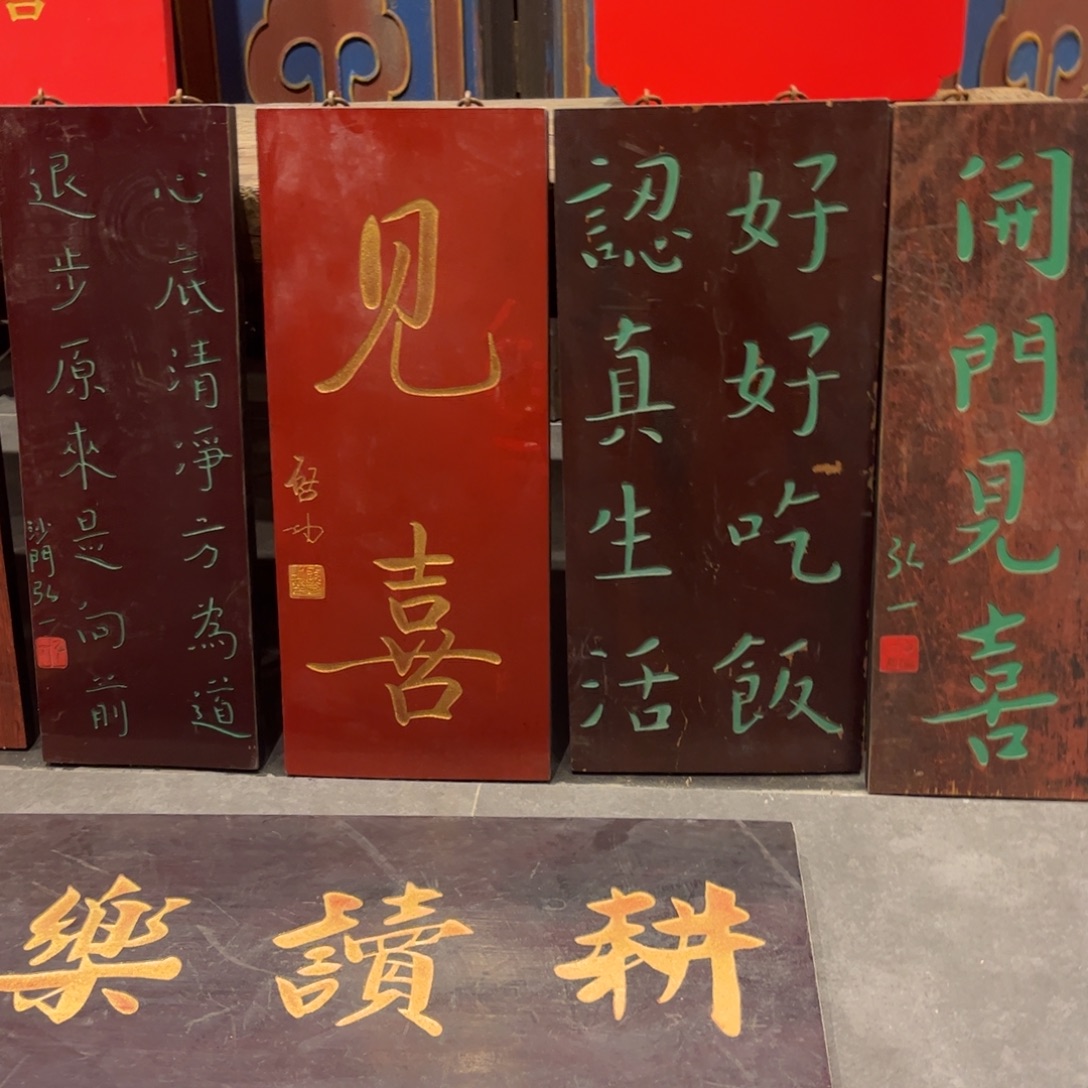 心底清淨方為道
退步原來是向前
沙門弘一
见喜
启功
好好吃飯
認真生活
開門見喜
弘一
耕讀樂